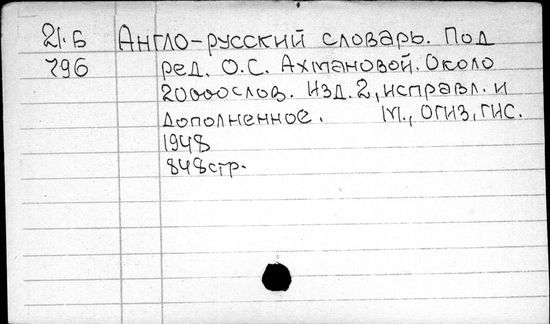 21.Б Англо-русский словарь. Под
796 ред. О.С. Ахмановой. Около
20000слов. Изд. 2, исправл. и
дополненное. М., ОГИЗ, ГИС.
1948
848стр.